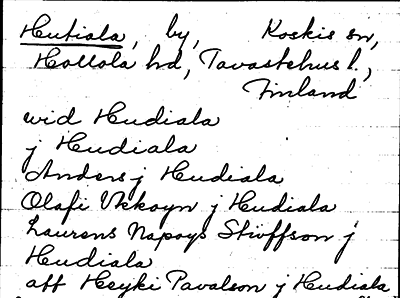 Hutiala, by, Koskis sn,
Hollola hd, Tavastehus l.,
Finland
wid Hudiala
j Hudiala
Anders j Hudiala
Olafi Vkkoyn j Hudiala
Laurens Napoys Stoffson j
Hudiala
aff Heyki Pavalson j Hudiala